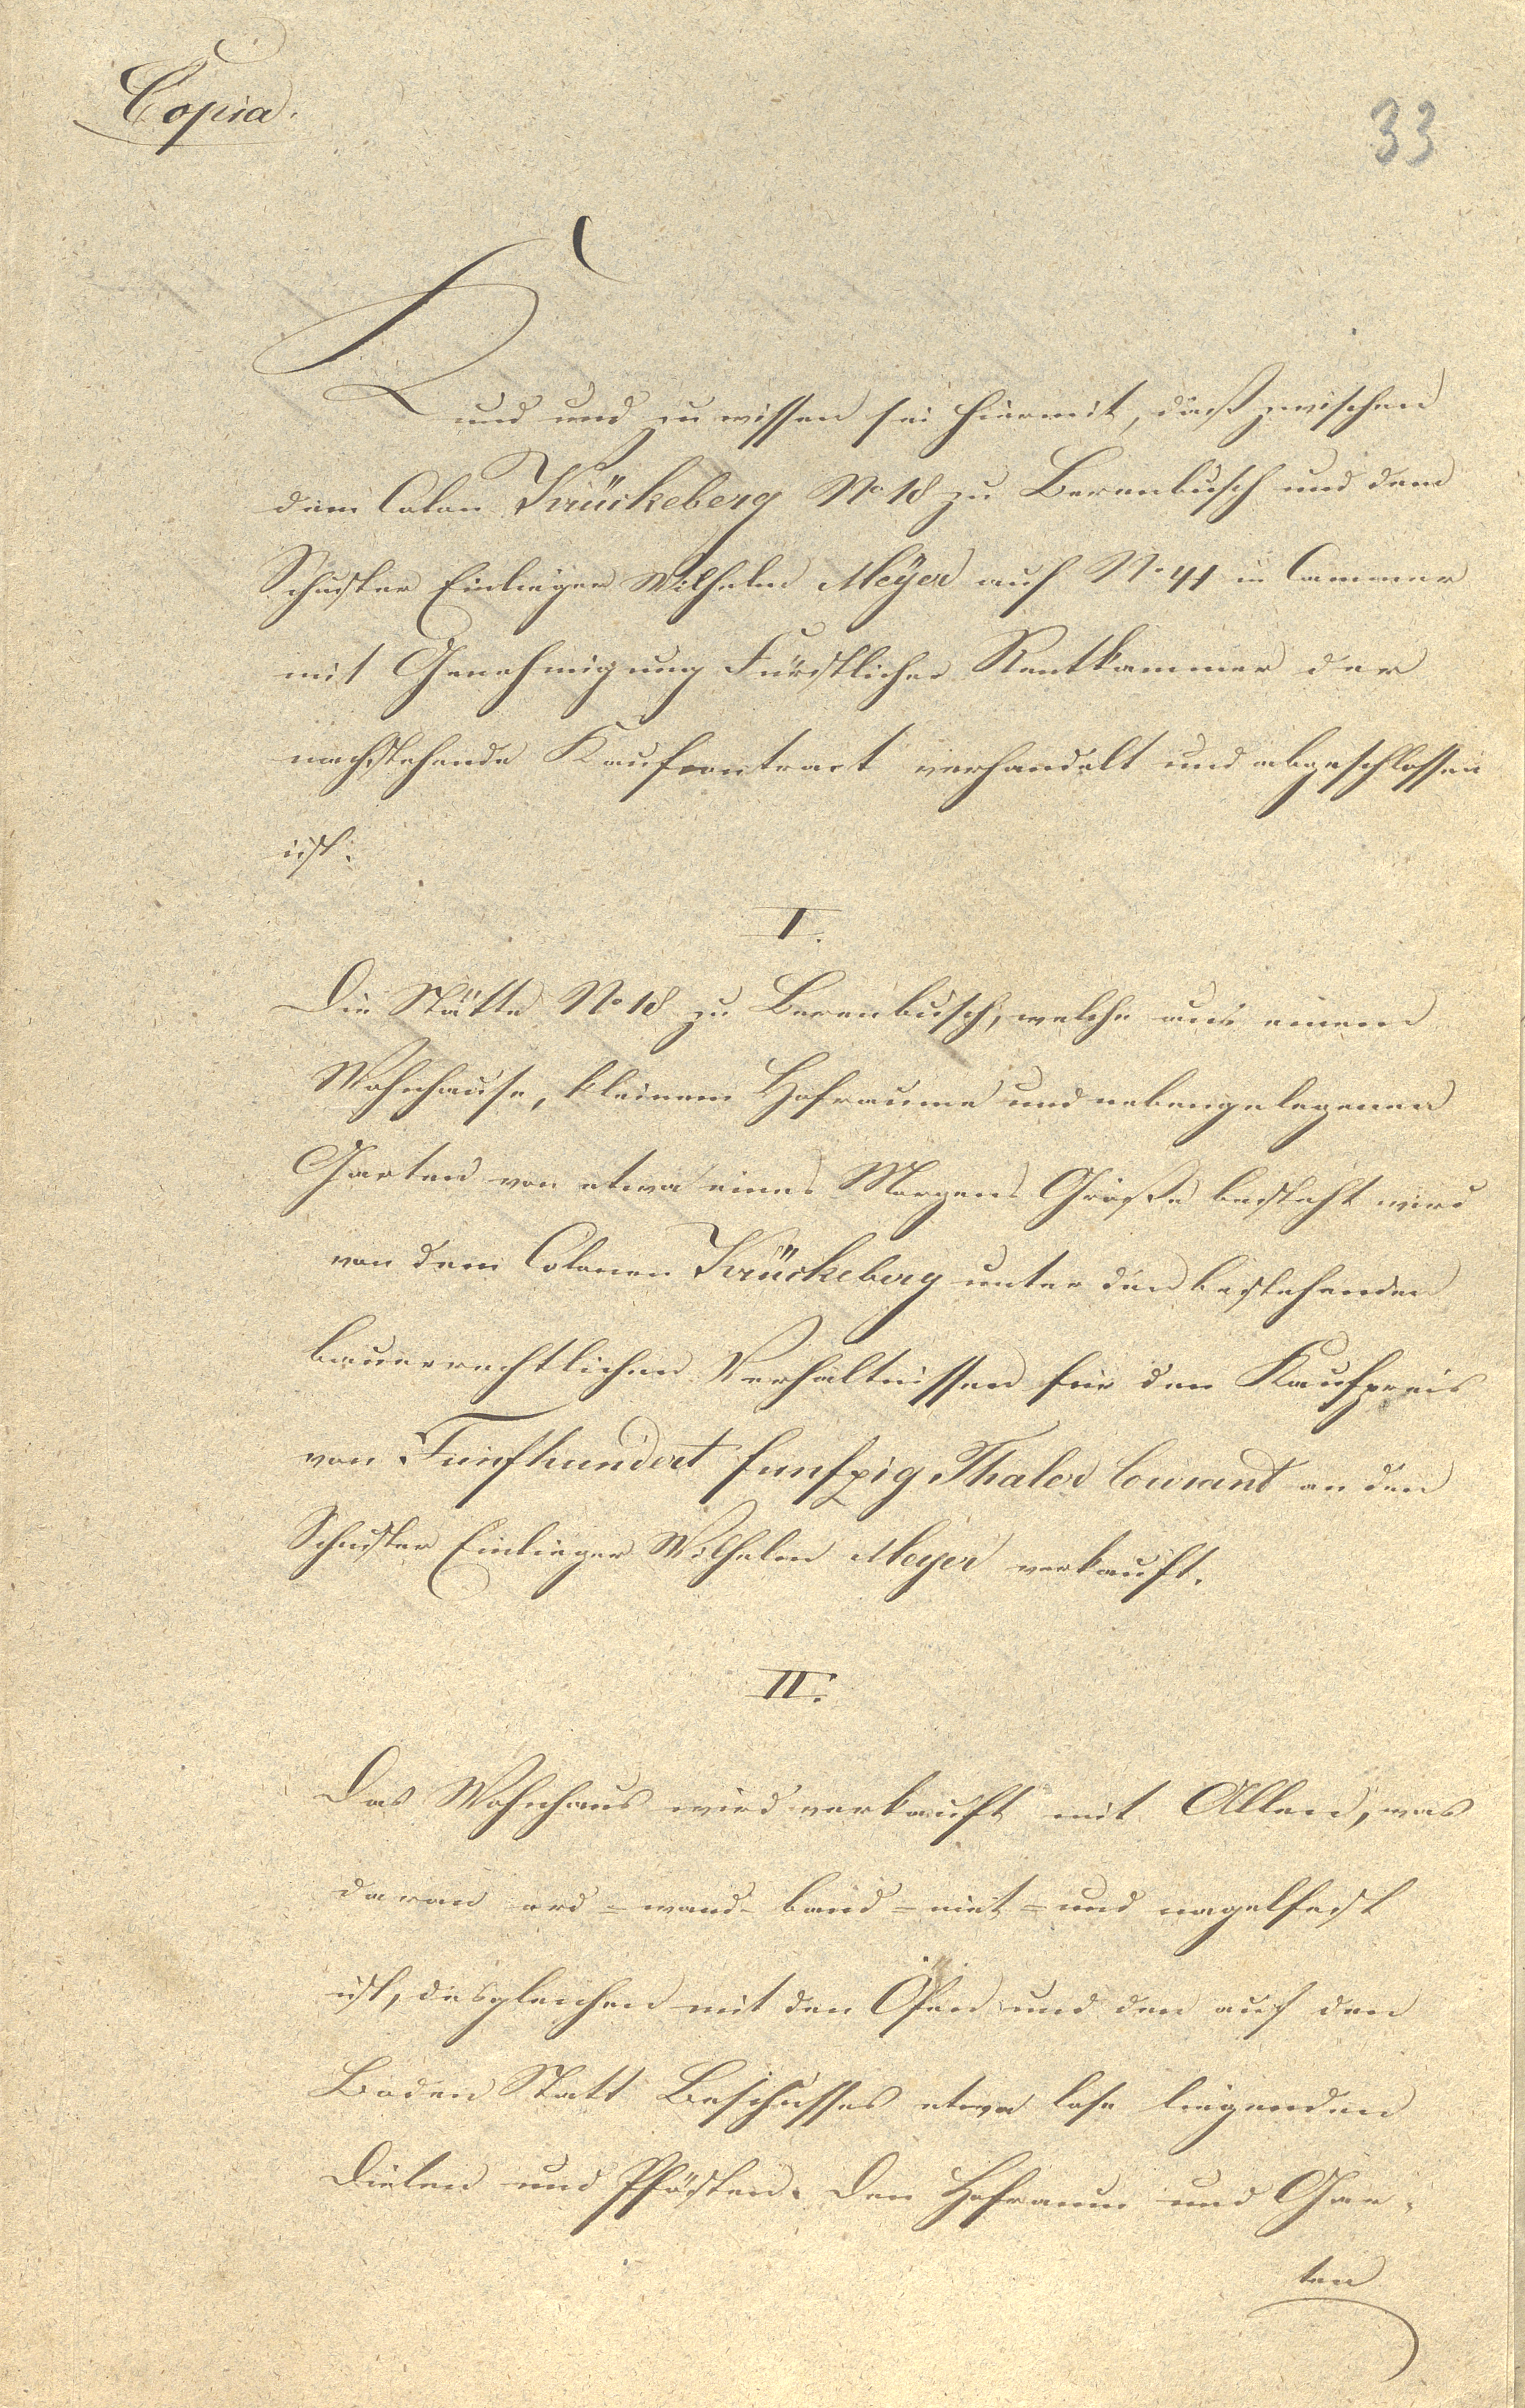 Copia.
33
Kund und zu wissen sei hiermit, daß zwischen
dem Colon Krückeberg No 18 zu Berenbusch und dem
Schuster Einlieger Wilhelm Meÿer auf No 41 in Cammer
mit Genehmigung Fürstlicher Rentkammer der
nachstehende Kaufcontract verhandelt und abgeschlossen
ist:
I.
Die Stätte No 18 zu Berenbusch, welche aus einem
Wohnhause, kleinem Hofraume und nebengelegenen
Garten von etwa eines Morgens Größe besteht wird
von dem Colonen Krückeberg unter den bestehenden
bauerrechtlichen Verhältnissen für den Kaufpreis
von Fünfhundert funfzig Thaler Courant an den
Schuster Einlieger Wilhelm Meyer verkauft.
II.
Das Wohnhaus wird verkauft mit Allen, was
daran erd = wand- band = niet = und nagelfest
ist, desgleichen mit den Öfen und den auf den
Boden Statt Beschusses etwa lose liegenden
Dielen und Pfösten. Den Hofraum und Gar-
ten